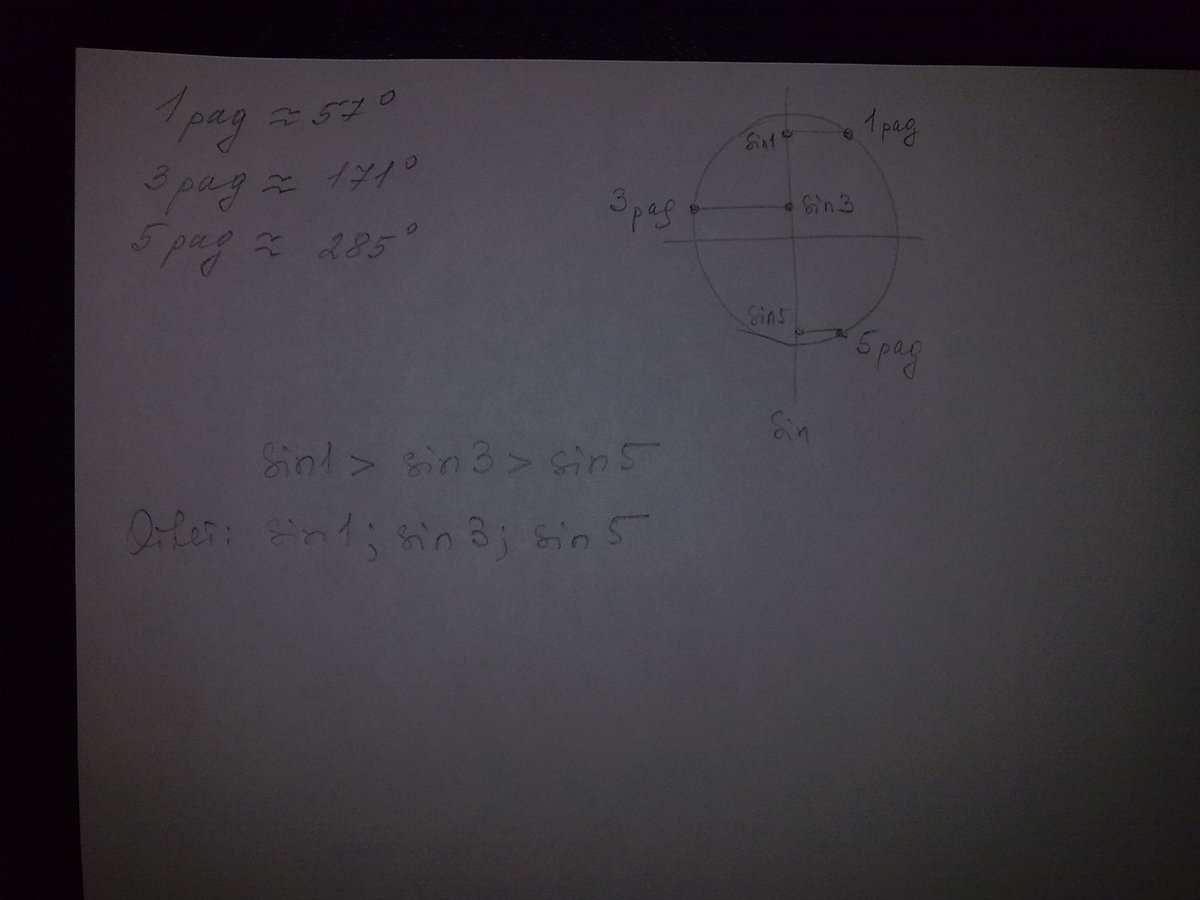 1 рад ≈ 57°
3 рад ≈ 171°
5 рад ≈ 285°
sin1
1 рад
3 рад
sin3
sin5
5 рад
sin
sin1 > sin3 > sin5
Ответ: sin1; sin3; sin5